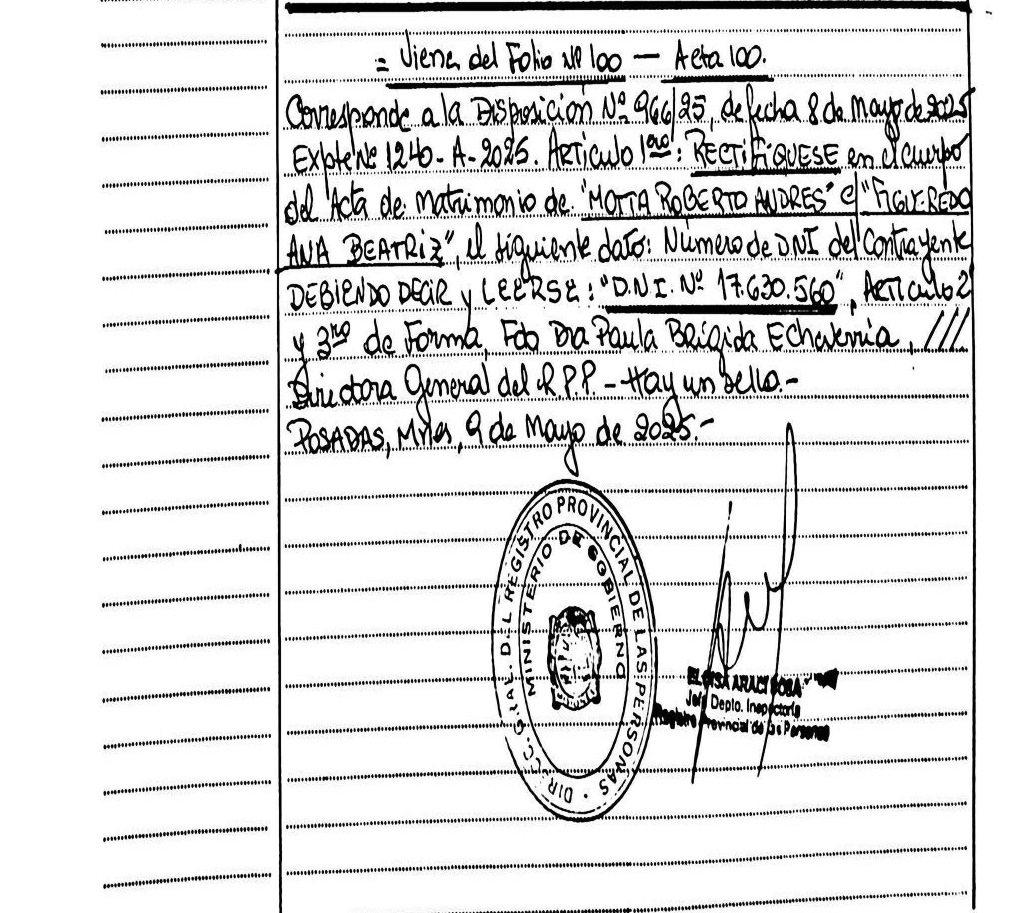 = Viene del Folio Nº 100 — Acta 100.
Corresponde a la Disposición Nº 966/25, de fecha 8 de Mayo de 2025
Expte Nº 1240-A-2025. Artículo 1ero: RECTIFÍQUESE en el cuerpo
del Acta de Matrimonio de "MOTTA ROBERTO ANDRES" c/ "FIGUEREDO
ANA BEATRIZ", el siguiente dato: Número de DNI del Contrayente
DEBIENDO DECIR y LEERSE: "D.N.I. Nº 17.630.560", Artículo 2
y 3ro de Forma, Fdo Dra Paula Brígida Echeverria, ///
Directora General del R.P.P. - Hay un sello.-
POSADAS, Mnes, 9 de Mayo de 2025.-
DIRECC. GRAL. DEL REGISTRO PROVINCIAL DE LAS PERSONAS
MINISTERIO DE GOBIERNO
ELOISA ARACI SOSA
Jefe Depto. Inspectoria
Registro Provincial de las Personas